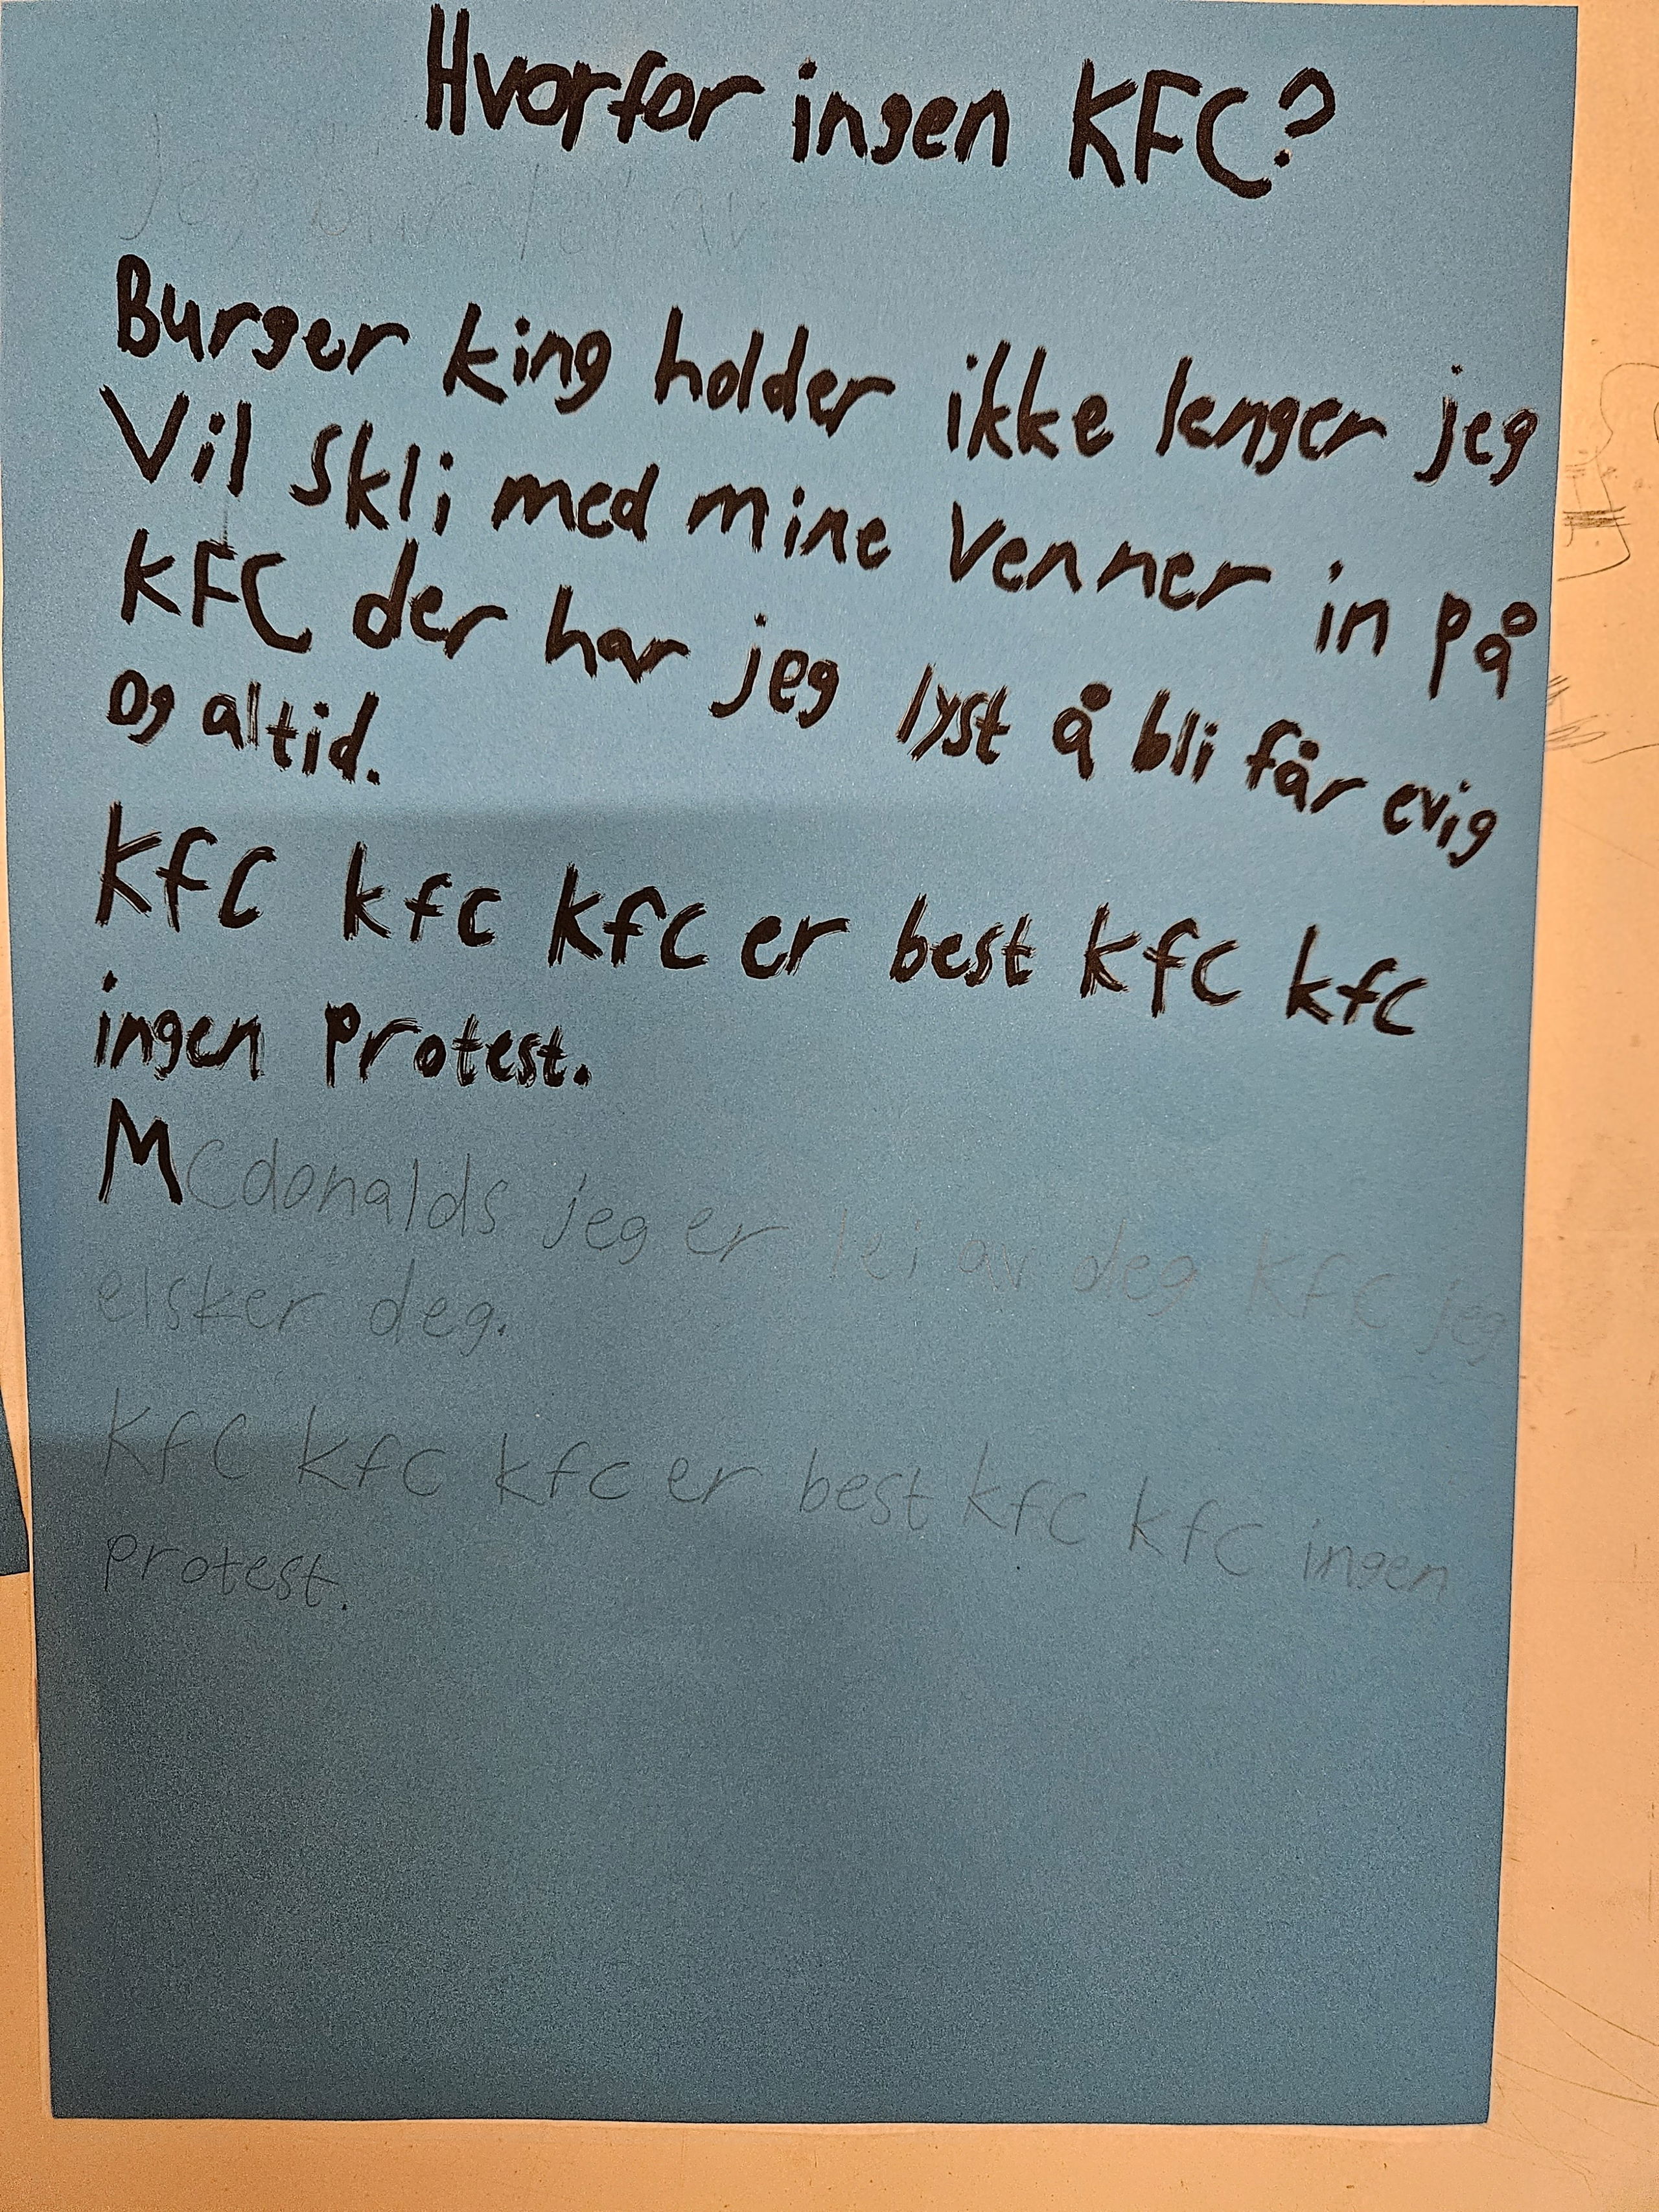 Hvorfor ingen KFC?
Jeg av
Burger king holder ikke lenger jeg
Vil skli med mine venner in på
KFC der har jeg lyst å bli får evig
og altid.
KfC kfc kfc er best kfc kfc
ingen protest.
MCdonalds jeg er lei av deg KfC jeg
elsker deg.
KfC kfc kfc er best kfc kfc ingen
protest.